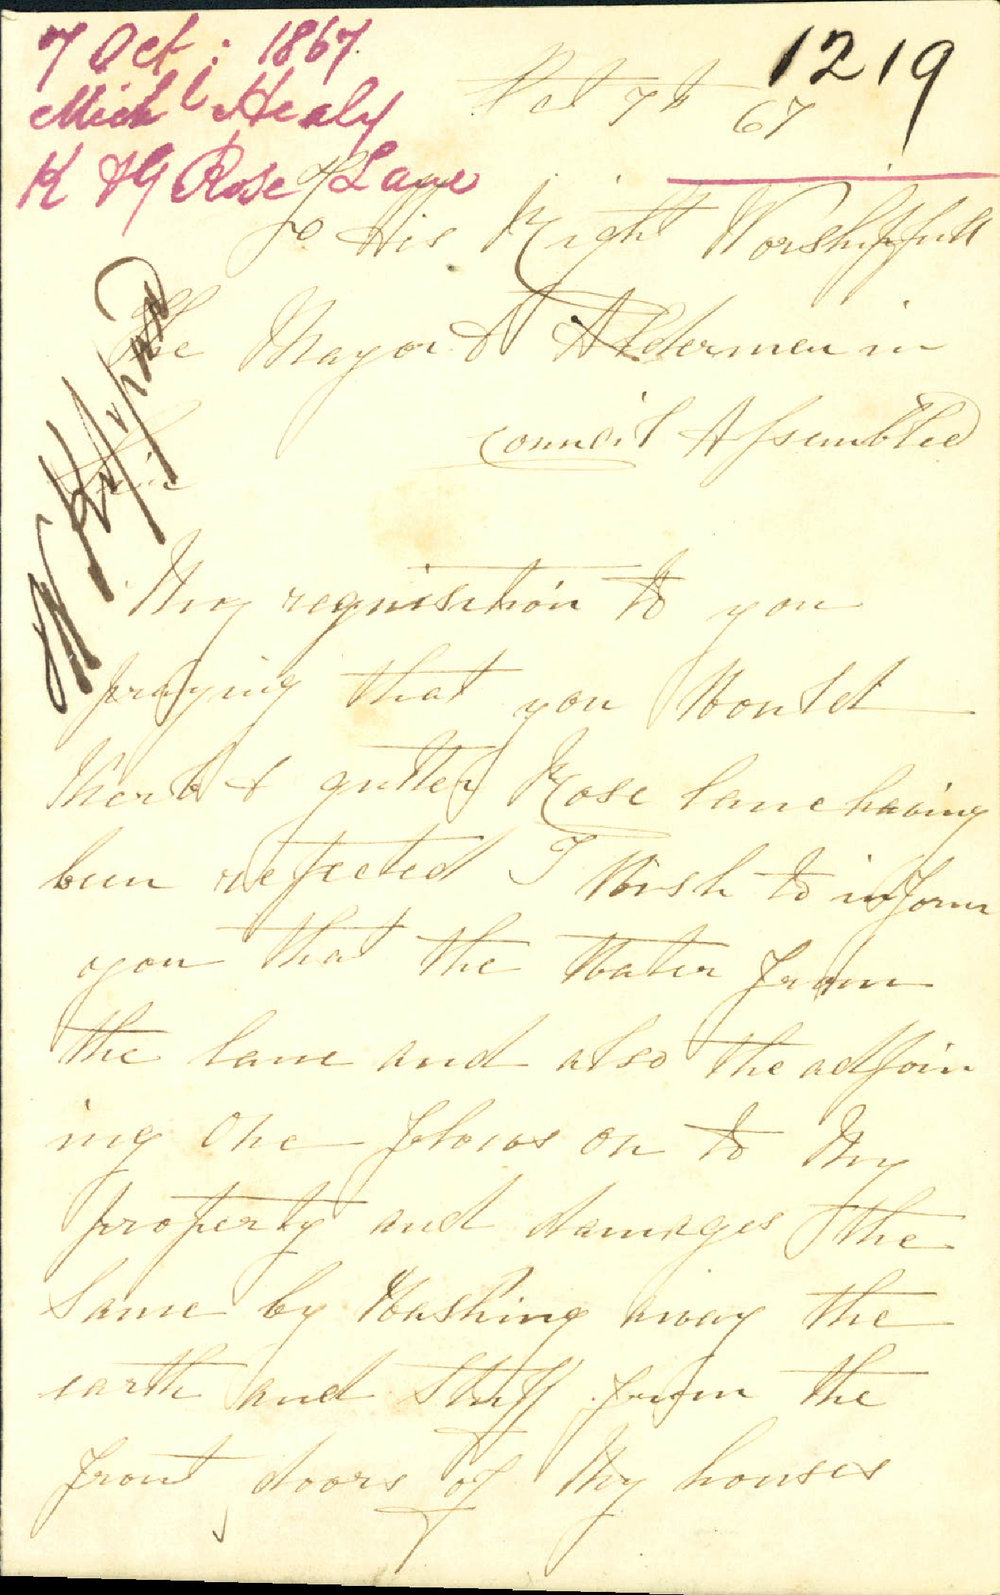 7 Oct: 1867
Michl Healy
K & G Rose Lane
1219
Oct 7th 67
To His Right Worshipfull
The Mayor & Aldermen in
Council Assembled
My requisition to you
praying that you Would
Kerb & gutter Rose lane having
been rejected I Wish to inform
you that the Water from
the lane and also the adjoin
ing One flows on to My
property and damages the
Same by Washing away the
earth and Stuff from the
front doors of My houses